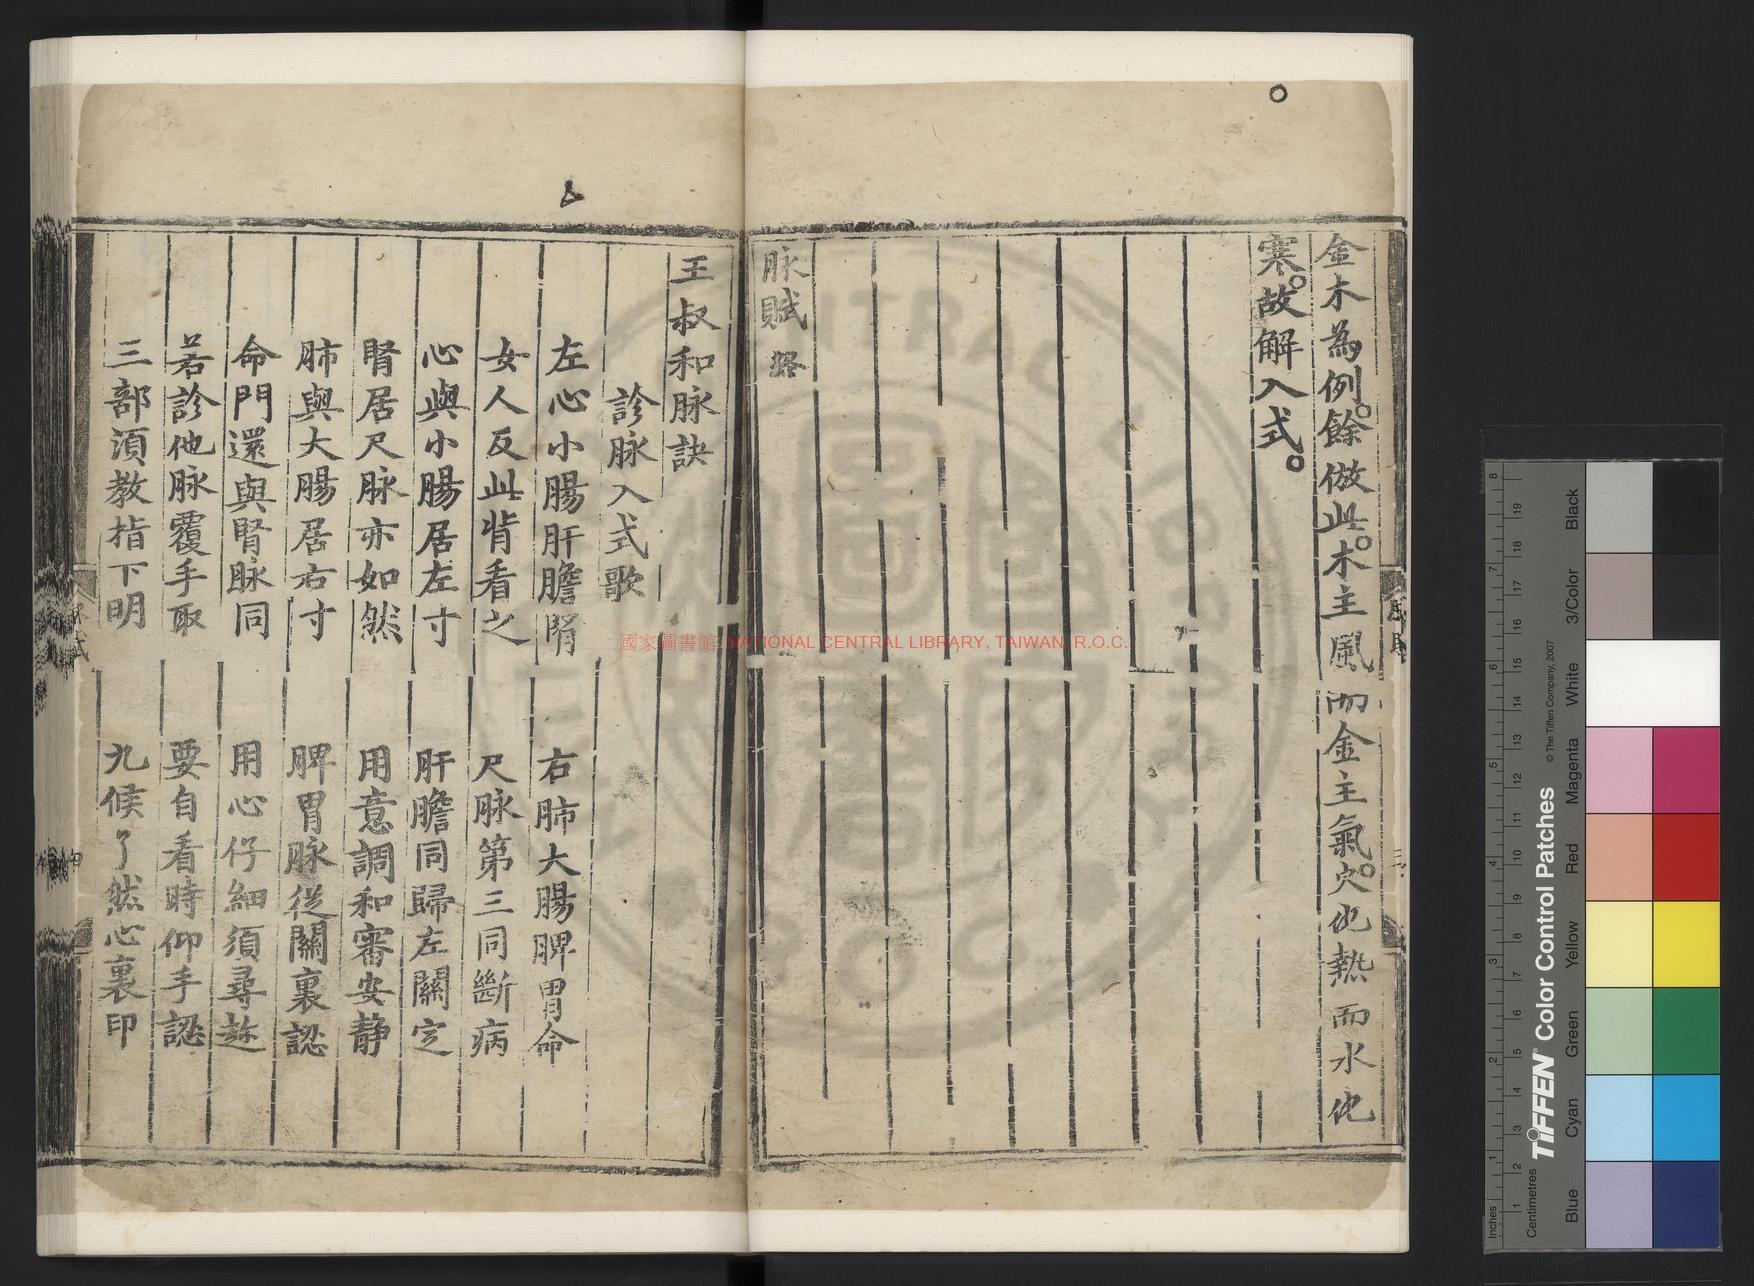 金木為例。餘倣此。木主風而金主氣。火也熱而水也
寒。故解入式。
脉賦
王叔和脉訣
診脉入式歌
左心小腸肝膽腎 右肺大腸脾胃命
女人反此背看之 尺脉第三同斷病
心與小腸居左寸 肝膽同歸左關定
腎居尺脉亦如然 用意調和審安静
肺與大腸居右寸 脾胃脉從關裏認
命門還與腎脉同 用心仔細須尋趂
若診他脉覆手取 要自看時仰手認
三部湏教指下明 九候了然心裏印
國家圖書館, NATIONAL CENTRAL LIBRARY, TAIWAN, R.O.C.
Inches
Centimetres
TIFFEN® Color Control Patches
© The Tiffen Company, 2007
Blue
Cyan
Green
Yellow
Red
Magenta
White
3/Color
Black